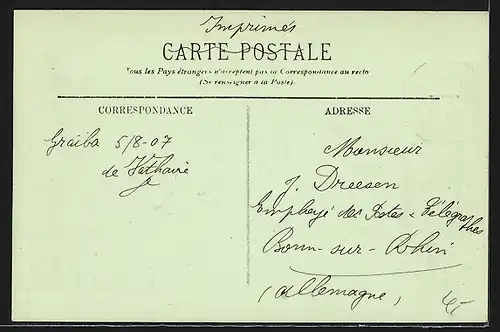 Imprimés
CARTE POSTALE
Tous les Pays étrangers n'acceptent pas la Correspondance au recto
(Se renseigner à la Poste).
CORRESPONDANCE
Graiba 5/8-07
de
ADRESSE
Monsieur
J. Dreesen
Employé des Postes & Télégraphes
Bonn-sur-Rhin
(Allemagne)
4,-